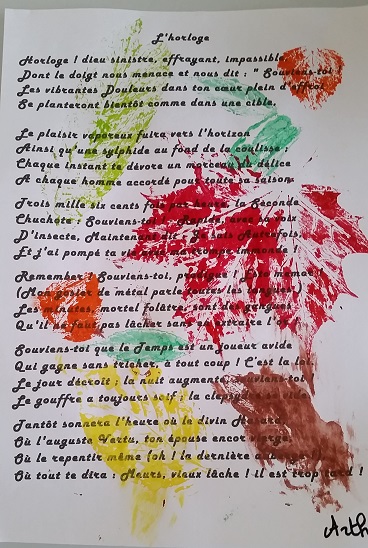 L'horloge
Horloge ! dieu sinistre, effrayant, impassible,
Dont le doigt nous menace et nous dit : " Souviens-toi
Les vibrantes Douleurs dans ton cœur plein d'effroi
Se planteront bientôt comme dans une cible,
Le plaisir vaporeux fuira vers l'horizon
Ainsi qu'une sylphide au fond de la coulisse ;
Chaque instant te dévore un morceau du délice
A chaque homme accordé pour toute sa saison.
Trois mille six cents fois par heure, la Seconde
Chuchote : Souviens-toi ! - Rapide, avec sa voix
D'insecte, Maintenant dit : Je suis Autrefois,
Et j'ai pompé ta vie avec ma trompe immonde !
Remember ! Souviens-toi, prodigue ! Esto memor !
(Mon gosier de métal parle toutes les langues.)
Les minutes, mortel folâtre, sont des gangues
Qu'il ne faut pas lâcher sans en extraire l'or
Souviens-toi que le Temps est un joueur avide
Qui gagne sans tricher, à tout coup ! C'est la loi.
Le jour décroît ; la nuit augmente ; souviens-toi
Le gouffre a toujours soif ; la clepsydre se vide
Tantôt sonnera l'heure où le divin Hasard,
Où l'auguste Vertu, ton épouse encor vierge,
Où le repentir même (oh ! la dernière auberge !),
Où tout te dira : Meurs, vieux lâche ! il est trop tard !
Arth